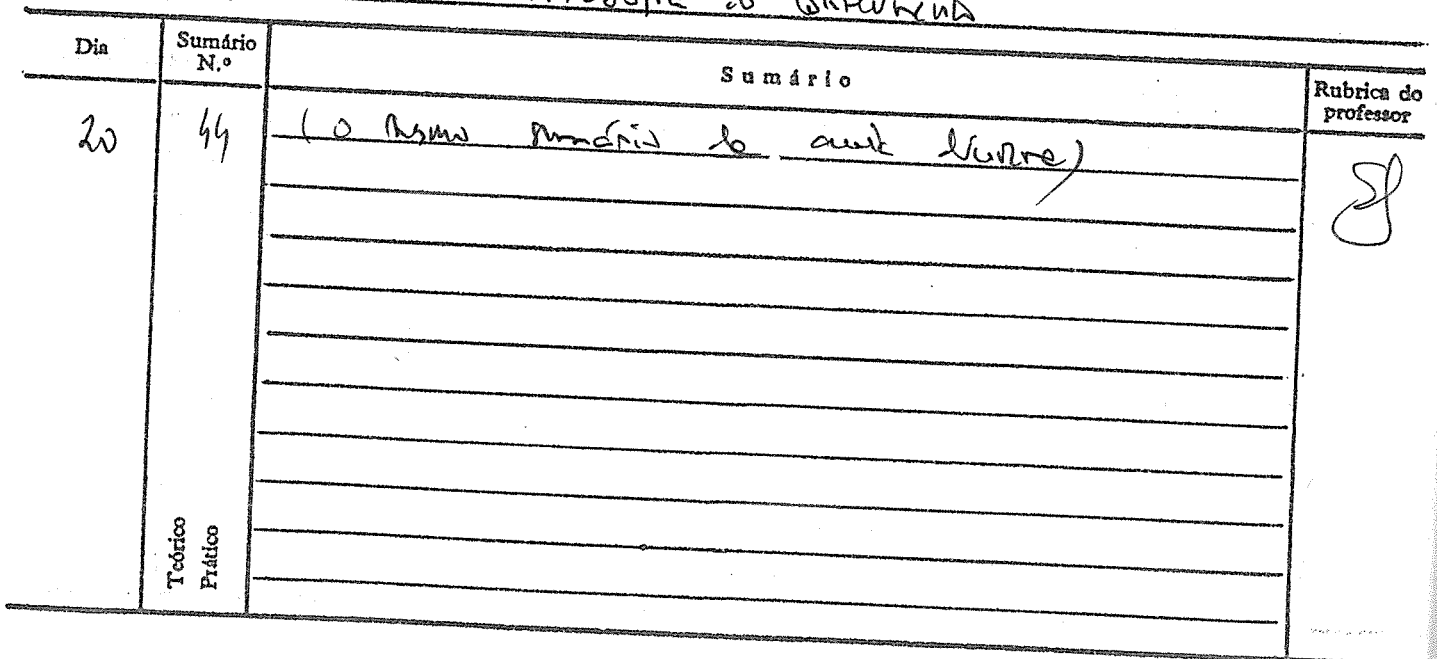 do Conhecimento
Dia
Sumário N.º
Sumário
Rubrica do professor
20 44 (O mesmo sumário da aula diurna)
Teórico
Prático